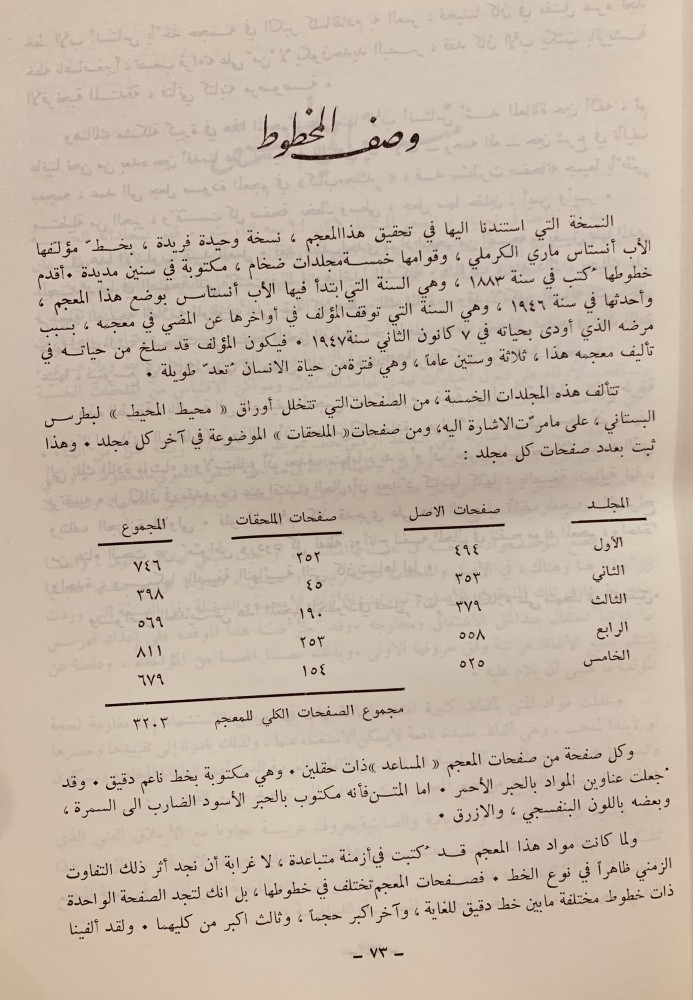 وصف المخطوط
النسخة التي استندنا اليها في تحقيق هذاالمعجم ، نسخة وحيدة فريدة ، بخطّ مؤلّفها
الأب أنستاس ماري الكرملي ، وقوامها خمسةمجلدات ضخام ، مكتوبة في سنين مديدة ٠ أقدم
خطوطها كُتب في سنة ١٨٨٣ ، وهي السنة التي ابتدأ فيها الأب أنستاس بوضع هذا المعجم ،
وأحدثها في سنة ١٩٤٦ ، وهي السنة التي توقف المؤلف في أواخرها عن المضي في معجمه ، بسبب
مرضه الذي أودى بحياته في ٧ كانون الثاني سنة ١٩٤٧ ٠ فيكون المؤلف قد سلخ من حياته في
تأليف معجمه هذا ، ثلاثة وستين عاماً ، وهي فترة من حياة الانسان تُعدّ طويلة ٠
تتألف هذه المجلدات الخمسة ، من الصفحات التي تتخلل أوراق « محيط المحيط » لبطرس
البستاني ، على مامرّت الاشارة اليه، ومن صفحات « الملحقات » الموضوعة في آخر كل مجلد ٠ وهذا
ثبت بعدد صفحات كل مجلد :
المجلد صفحات الاصل صفحات الملحقات المجموع
الأول ٤٩٤ ٢٥٢ ٧٤٦
الثاني ٣٥٣ ٤٥ ٣٩٨
الثالث ٣٧٩ ١٩٠ ٥٦٩
الرابع ٥٥٨ ٢٥٣ ٨١١
الخامس ٥٢٥ ١٥٤ ٦٧٩
مجموع الصفحات الكلي للمعجم ٣٢٠٣
وكل صفحة من صفحات المعجم « المساعد » ذات حقلين ٠ وهي مكتوبة بخط ناعم دقيق ٠ وقد
جُعلت عناوين المواد بالحبر الأحمر ٠ اما المتن فأنه مكتوب بالحبر الأسود الضارب الى السمرة ،
وبعضه باللون البنفسجي ، والازرق ٠
ولما كانت مواد هذا المعجم قد كُتبت في أزمنة متباعدة ، لا غرابة أن نجد أثر ذلك التفاوت
الزمني ظاهراً في نوع الخط ٠ فصفحات المعجم تختلف في خطوطها ، بل انك لتجد الصفحة الواحدة
ذات خطوط مختلفة مابين خط دقيق للغاية ، وآخر اكبر حجماً ، وثالث اكبر من كليهما ٠ ولقد ألفينا
– ٧٣ –